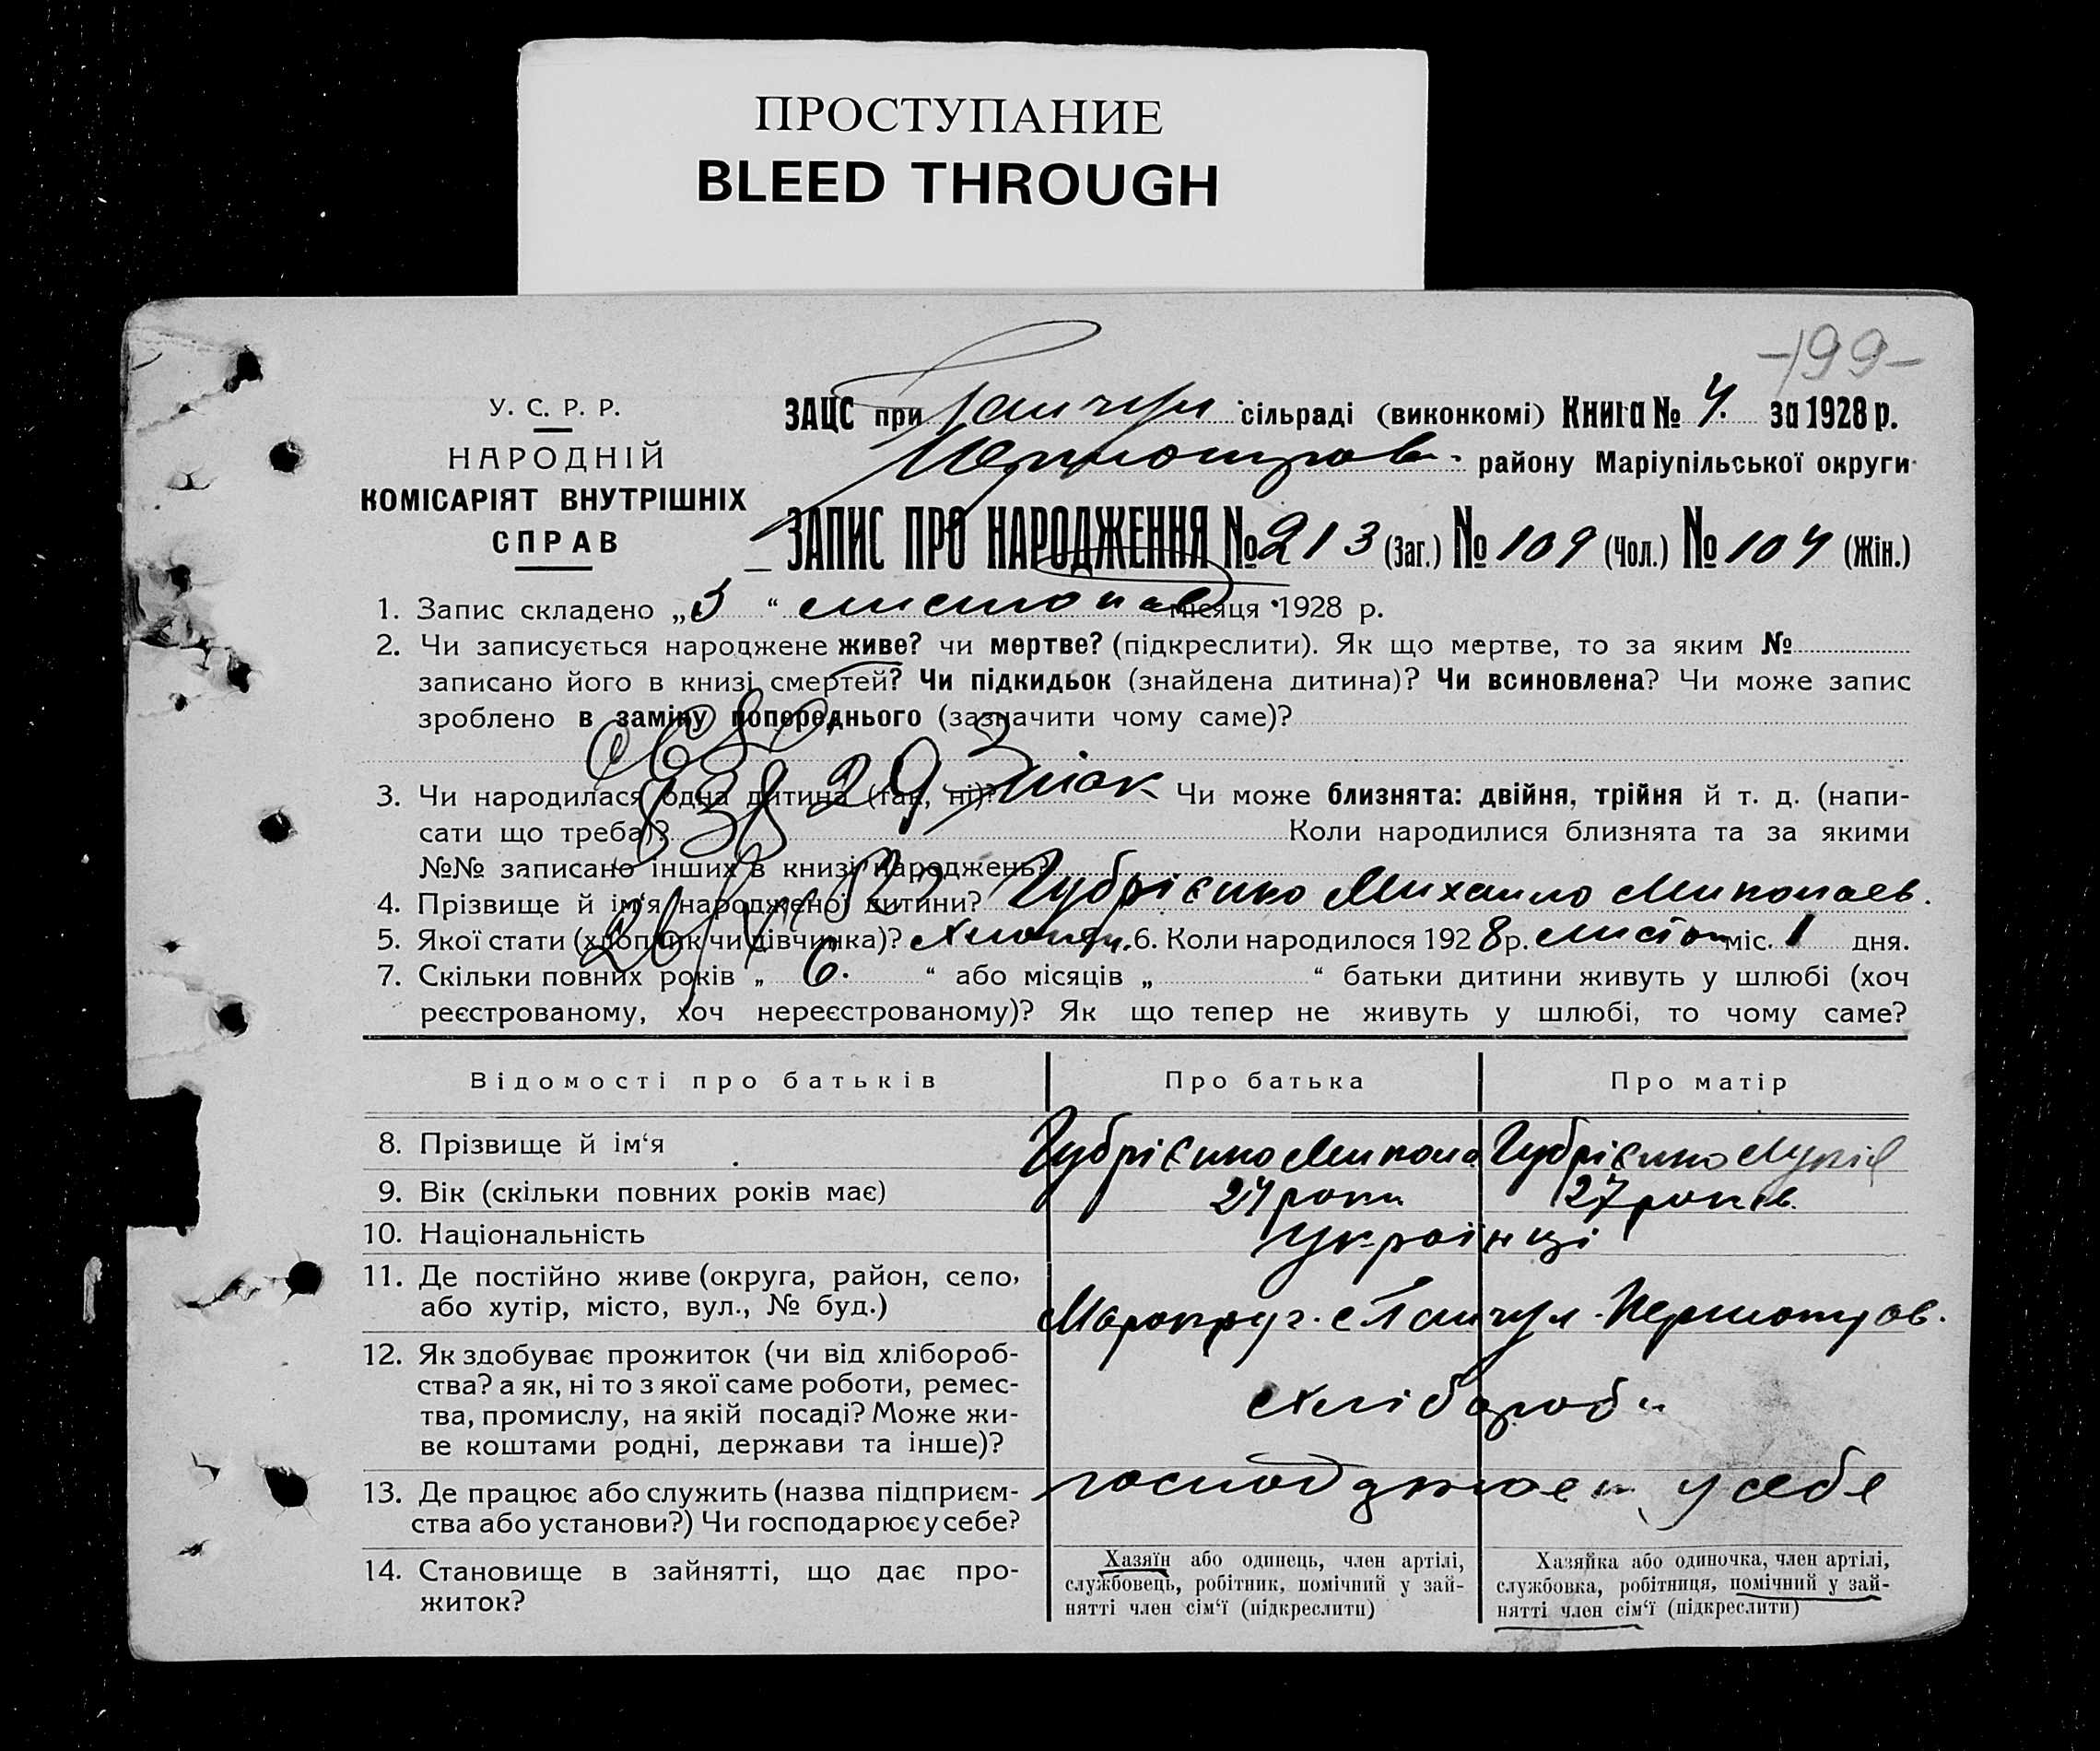 ПРОСТУПАНИЕ
BLEED THROUGH
-199-
У. С. Р. Р.
НАРОДНІЙ
КОМІСАРІЯТ ВНУТРІШНІХ
СПРАВ
ЗАЦС при сільраді (виконкомі) Книга № 4. за 1928 р.
району Маріупільської округи
ЗАПИС ПРО НАРОДЖЕННЯ № 213 (Заг.) № 109 (Чол.) № 104 (Жін.)
1. Запис складено „3“ листопад місяця 1928 р.
2. Чи записується народжене живе? чи мертве? (підкреслити). Як що мертве, то за яким №
записано його в книзі смертей? Чи підкидьок (знайдена дитина)? Чи всиновлена? Чи може запис
зроблено в заміну попереднього (зазначити чому саме)?
3. Чи народилася одна дитина (так, ні)? Чи може близнята: двійня, трійня й т. д. (напи-
сати що треба)? Коли народилися близнята та за якими
№№ записано інших в книзі народжень?
4. Прізвище й ім'я народженої дитини? Губрієнко Михайло Миколаев.
5. Якої стати (хлопчик чи дівчинка)? хлопч. 6. Коли народилося 1928 р. листоп міс. 1 дня.
7. Скільки повних років „ 6. “ або місяців „ “ батьки дитини живуть у шлюбі (хоч
реєстрованому, хоч нереєстрованому)? Як що тепер не живуть у шлюбі, то чому саме?
Відомості про батьків Про батька Про матір
8. Прізвище й ім‘я Губрієнко Микола Губрієнко
9. Вік (скільки повних років має) 24 роки 27 років.
10. Національність Українці
11. Де постійно живе (округа, район, село,
або хутір, місто, вул., № буд.)
12. Як здобуває прожиток (чи від хлібороб-
ства? а як, ні то з якої саме роботи, ремес-
тва, промислу, на якій посаді? Може жи-
ве коштами родні, держави та інше)?
хлібороби
13. Де працює або служить (назва підприєм-
ства або установи?) Чи господарює у себе?
у себе
14. Становище в зайнятті, що дає про-
житок?
Хазяїн або одинець, член артілі,
службовець, робітник, помічний у зай-
нятті член сім‘ї (підкреслити)
Хазяйка або одиночка, член артілі,
службовка, робітниця, помічний у зай-
нятті член сім‘ї (підкреслити)